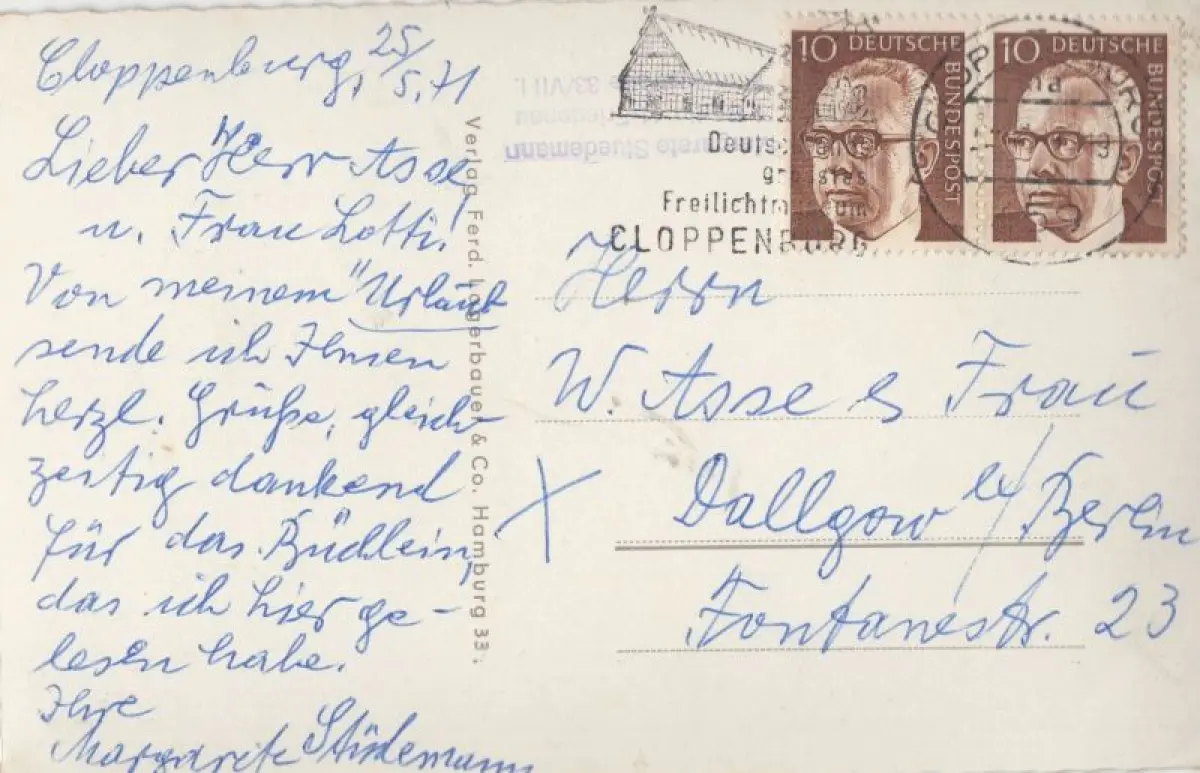 Cloppenburg, 25/5.71
Lieber Herr Asse
u. Frau Lotti!
Von meinem "Urlaub
sende ich Ihnen
herzl. Grüße, gleich-
zeitig dankend
für das Büchlein,
das ich hier ge-
lesen habe.
Ihre
Margarete Stüdemann
Verlag Ferd. Lagerbauer & Co. Hamburg 33.
Margarete Stuedemann
Friedenau
33/VII I.
Deutschlands
grösstes
Freilichtmuseum
CLOPPENBURG
10 DEUTSCHE BUNDESPOST
10 DEUTSCHE BUNDESPOST
CLOPPENBURG
Herrn
W. Asse & Frau
X Dallgow b/Berlin
Fontanestr. 23